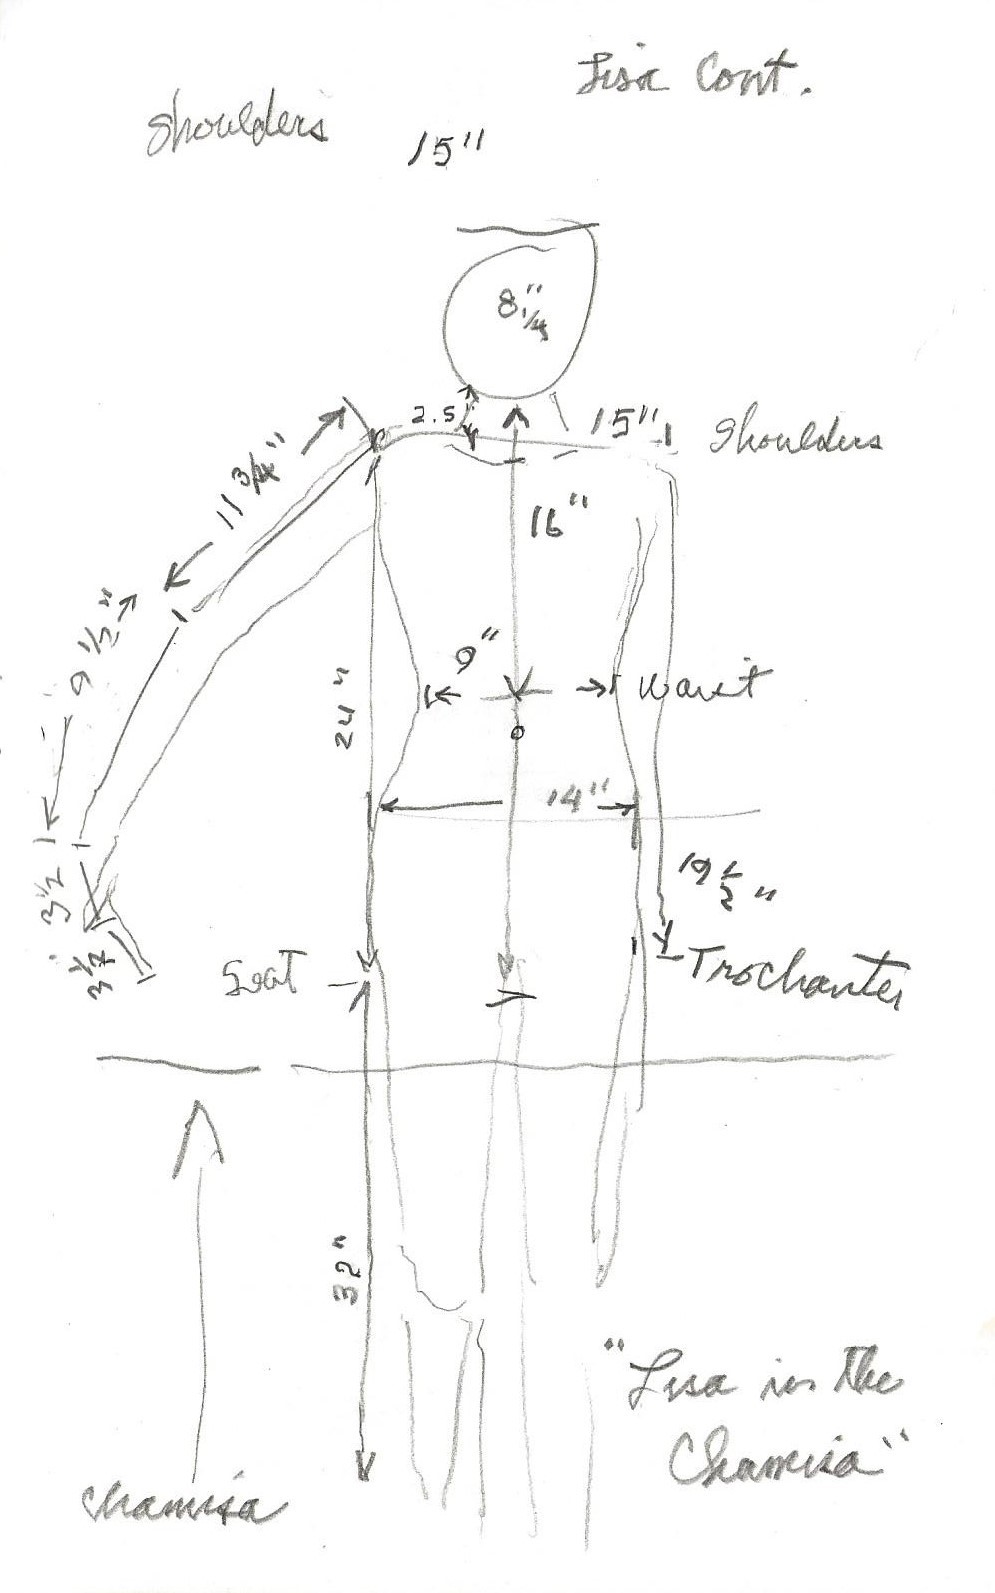 Lisa Cont.
Shoulders
15"
8 1/4"
2.5"
15"
Shoulders
11 3/4"
16"
9 1/2"
9"
Waist
24"
14"
3 1/2
19 1/2"
3 1/2
Seat
Trochanter
32"
"Lisa in the
Chamisa"
Chamisa